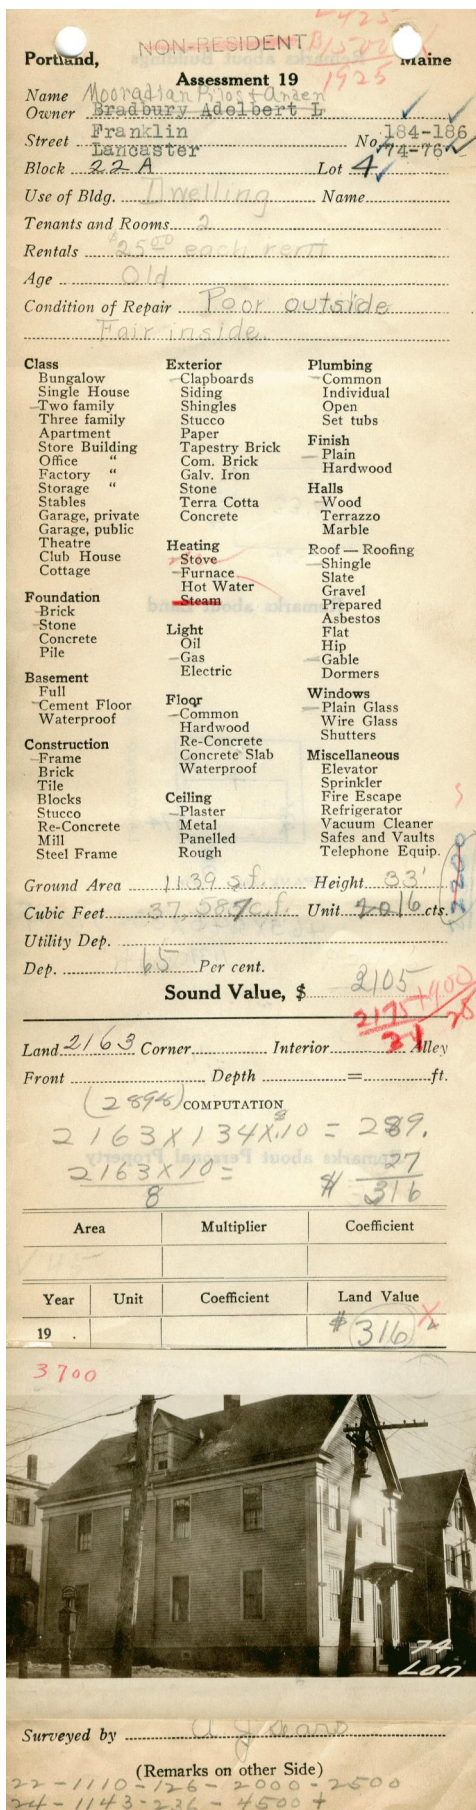 L 425
NON-RESIDENT B 1500 X
Portland, Maine
Assessment 19 1925
Name Mooradian Bilos & Arden
Owner Bradbury Adelbert L
Street Franklin No. 184-186
Lancaster 74-76
Block 22 A Lot 4
Use of Bldg. Dwelling Name
Tenants and Rooms 2
Rentals $25.00 each rent
Age Old
Condition of Repair Poor outside
Fair inside.
Class
Bungalow
Single House
Two family
Three family
Apartment
Store Building
Office "
Factory "
Storage "
Stables
Garage, private
Garage, public
Theatre
Club House
Cottage
Foundation
Brick
Stone
Concrete
Pile
Basement
Full
Cement Floor
Waterproof
Construction
Frame
Brick
Tile
Blocks
Stucco
Re-Concrete
Mill
Steel Frame
Exterior
Clapboards
Siding
Shingles
Stucco
Paper
Tapestry Brick
Com. Brick
Galv. Iron
Stone
Terra Cotta
Concrete
Heating
Stove
Furnace
Hot Water
Steam
Light
Oil
Gas
Electric
Floor
Common
Hardwood
Re-Concrete
Concrete Slab
Waterproof
Ceiling
Plaster
Metal
Panelled
Rough
Plumbing
Common
Individual
Open
Set tubs
Finish
Plain
Hardwood
Halls
Wood
Terrazzo
Marble
Roof — Roofing
Shingle
Slate
Gravel
Prepared
Asbestos
Flat
Hip
Gable
Dormers
Windows
Plain Glass
Wire Glass
Shutters
Miscellaneous
Elevator
Sprinkler
Fire Escape
Refrigerator
Vacuum Cleaner
Safes and Vaults
Telephone Equip.
2200
Ground Area 1139 s.f. Height 33'
Cubic Feet 37,587 c.f. Unit 16 cts.
Utility Dep.
Dep. 65 Per cent.
Sound Value, $ 2105
2175 + 400
Land 2163 Corner Interior Alley
Front Depth = ft.
(2898) COMPUTATION
2163 X 134 X .10 = 289.
2163 X 10 = 27
8 $ 316
Area Multiplier Coefficient
Year Unit Coefficient Land Value
19 . $ 316 X
3700
74
Lan
Surveyed by A J Sears
(Remarks on other Side)
22 - 1110 - 126 - 2000 - 2500
24 - 1143 - 236 - 4500 +